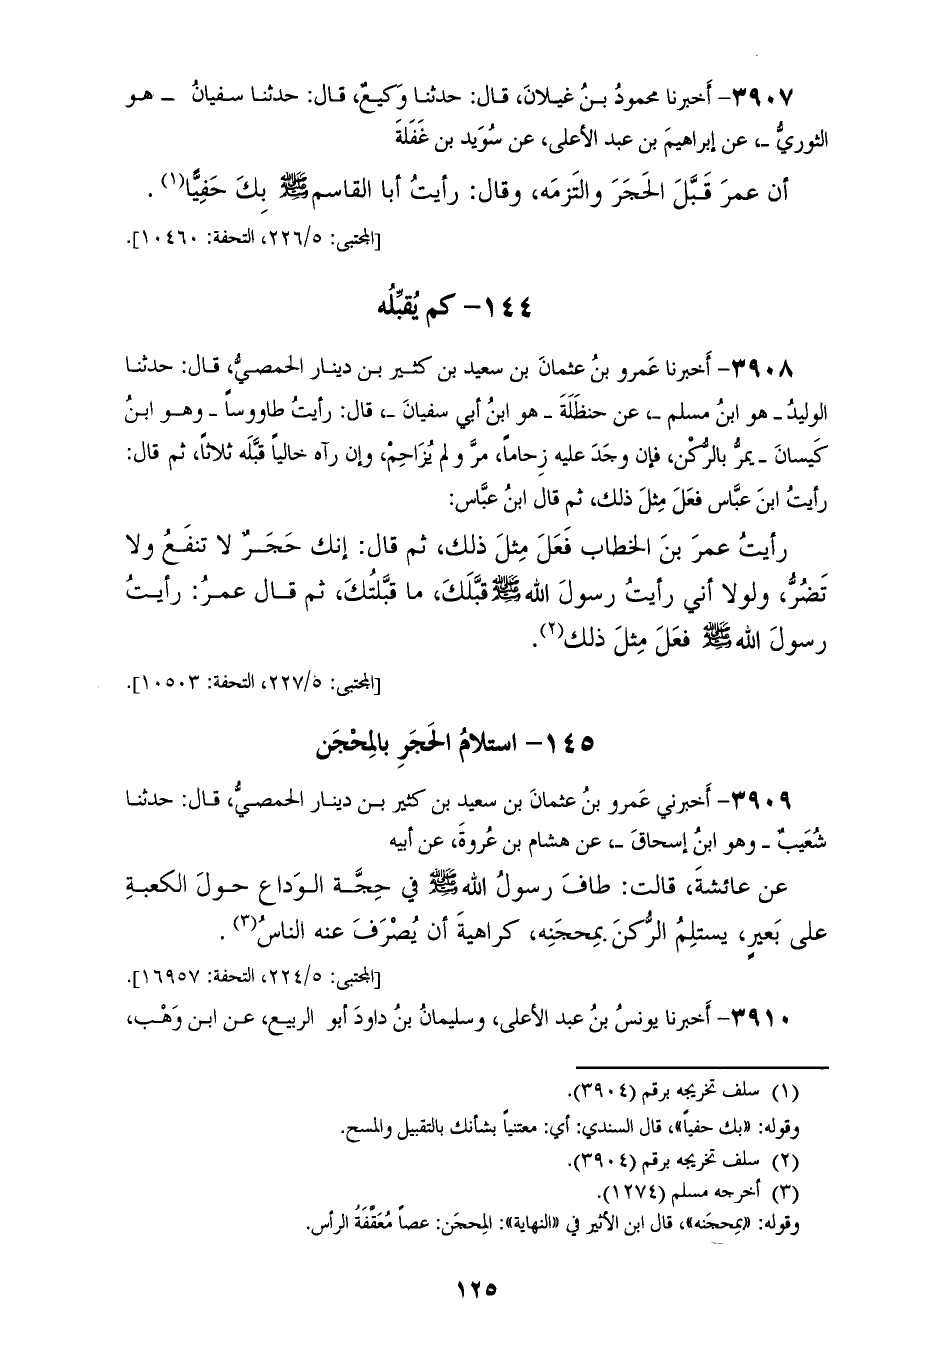 ٣٩٠٧- أَخبرنا محمودُ بـنُ غيـلانَ، قـال: حدثنـا وَكيـعٌ، قـال: حدثنـا سـفيانُ ـ هـو
الثوريُّ ـ، عن إبراهيمَ بن عبد الأعلى، عن سُوَيد بن غَفَلَةَ
أن عمرَ قَـبَّلَ الحَجَرَ والتَزمَه، وقال: رأيتُ أبا القاسم ﷺ بِكَ حَفِيًّا(١) .
[المجتبى: ٢٢٦/٥، التحفة: ١٠٤٦٠].
١٤٤- كم يُقبِّلُه
٣٩٠٨- أَخبرنا عَمرو بنُ عثمانَ بن سعيد بن كثير بـن دينـار الحمصيُّ، قـال: حدثنـا
الوليدُ ـ هو ابنُ مسلم ـ، عن حنظَلَةَ ـ هو ابنُ أبي سفيانَ ـ، قال: رأيتُ طاووساً ـ وهـو ابـنُ
كَيسانَ ـ يمرُّ بالرُّكْن، فإن وجَدَ عليه زِحاماً، مرَّ ولم يُزَاحِمْ، وإن رآه خالياً قبَّلَه ثلاثاً، ثم قال:
رأيتُ ابنَ عبَّاس فعَلَ مِثلَ ذلك، ثم قال ابنُ عبَّاس:
رأيتُ عمرَ بـنَ الخطاب فَعَلَ مِثلَ ذلك، ثم قال: إنك حَجَـرٌ لا تنفَـعُ ولا
تَضُرُّ، ولولا أني رأيتُ رسولَ الله ﷺ قبَّلَكَ، ما قبَّلتُكَ، ثم قـال عمـرُ: رأيـتُ
رسولَ الله ﷺ فعَلَ مِثلَ ذلك(٢).
[المجتبى: ٢٢٧/٥، التحفة: ١٠٥٠٣].
١٤٥- استلامُ الحَجَرِ بالمِحْجَن
٣٩٠٩- أَخبرني عَمرو بنُ عثمانَ بن سعيد بن كثير بـن دينار الحمصيُّ، قـال: حدثنـا
شُعَيبٌ ـ وهو ابنُ إسحاقَ ـ، عن هشام بن عُروةَ، عن أبيه
عن عائشةَ، قالت: طافَ رسولُ الله ﷺ في حِجَّـة الـوَداع حـولَ الكعبـةِ
على بَعيرٍ، يستلِمُ الرُّكنَ بمِحجَنِه، كراهيةَ أن يُصْرَفَ عنه الناسُ(٣) .
[المجتبى: ٢٢٤/٥، التحفة: ١٦٩٥٧].
٣٩١٠- أَخبرنا يونسُ بنُ عبد الأعلى، وسليمانُ بنُ داودَ أبو الربيع، عـن ابـن وَهْب،
(١) سلف تخريجه برقم (٣٩٠٤).
وقوله: «بك حفياً»، قال السندي: أي: معتنياً بشأنك بالتقبيل والمسح.
(٢) سلف تخريجه برقم (٣٩٠٤).
(٣) أخرجه مسلم (١٢٧٤).
وقوله: «بمِحجَنه»، قال ابن الأثير في «النهاية»: المِحجَن: عصاً مُعَقَّفَةُ الرأس.
١٢٥